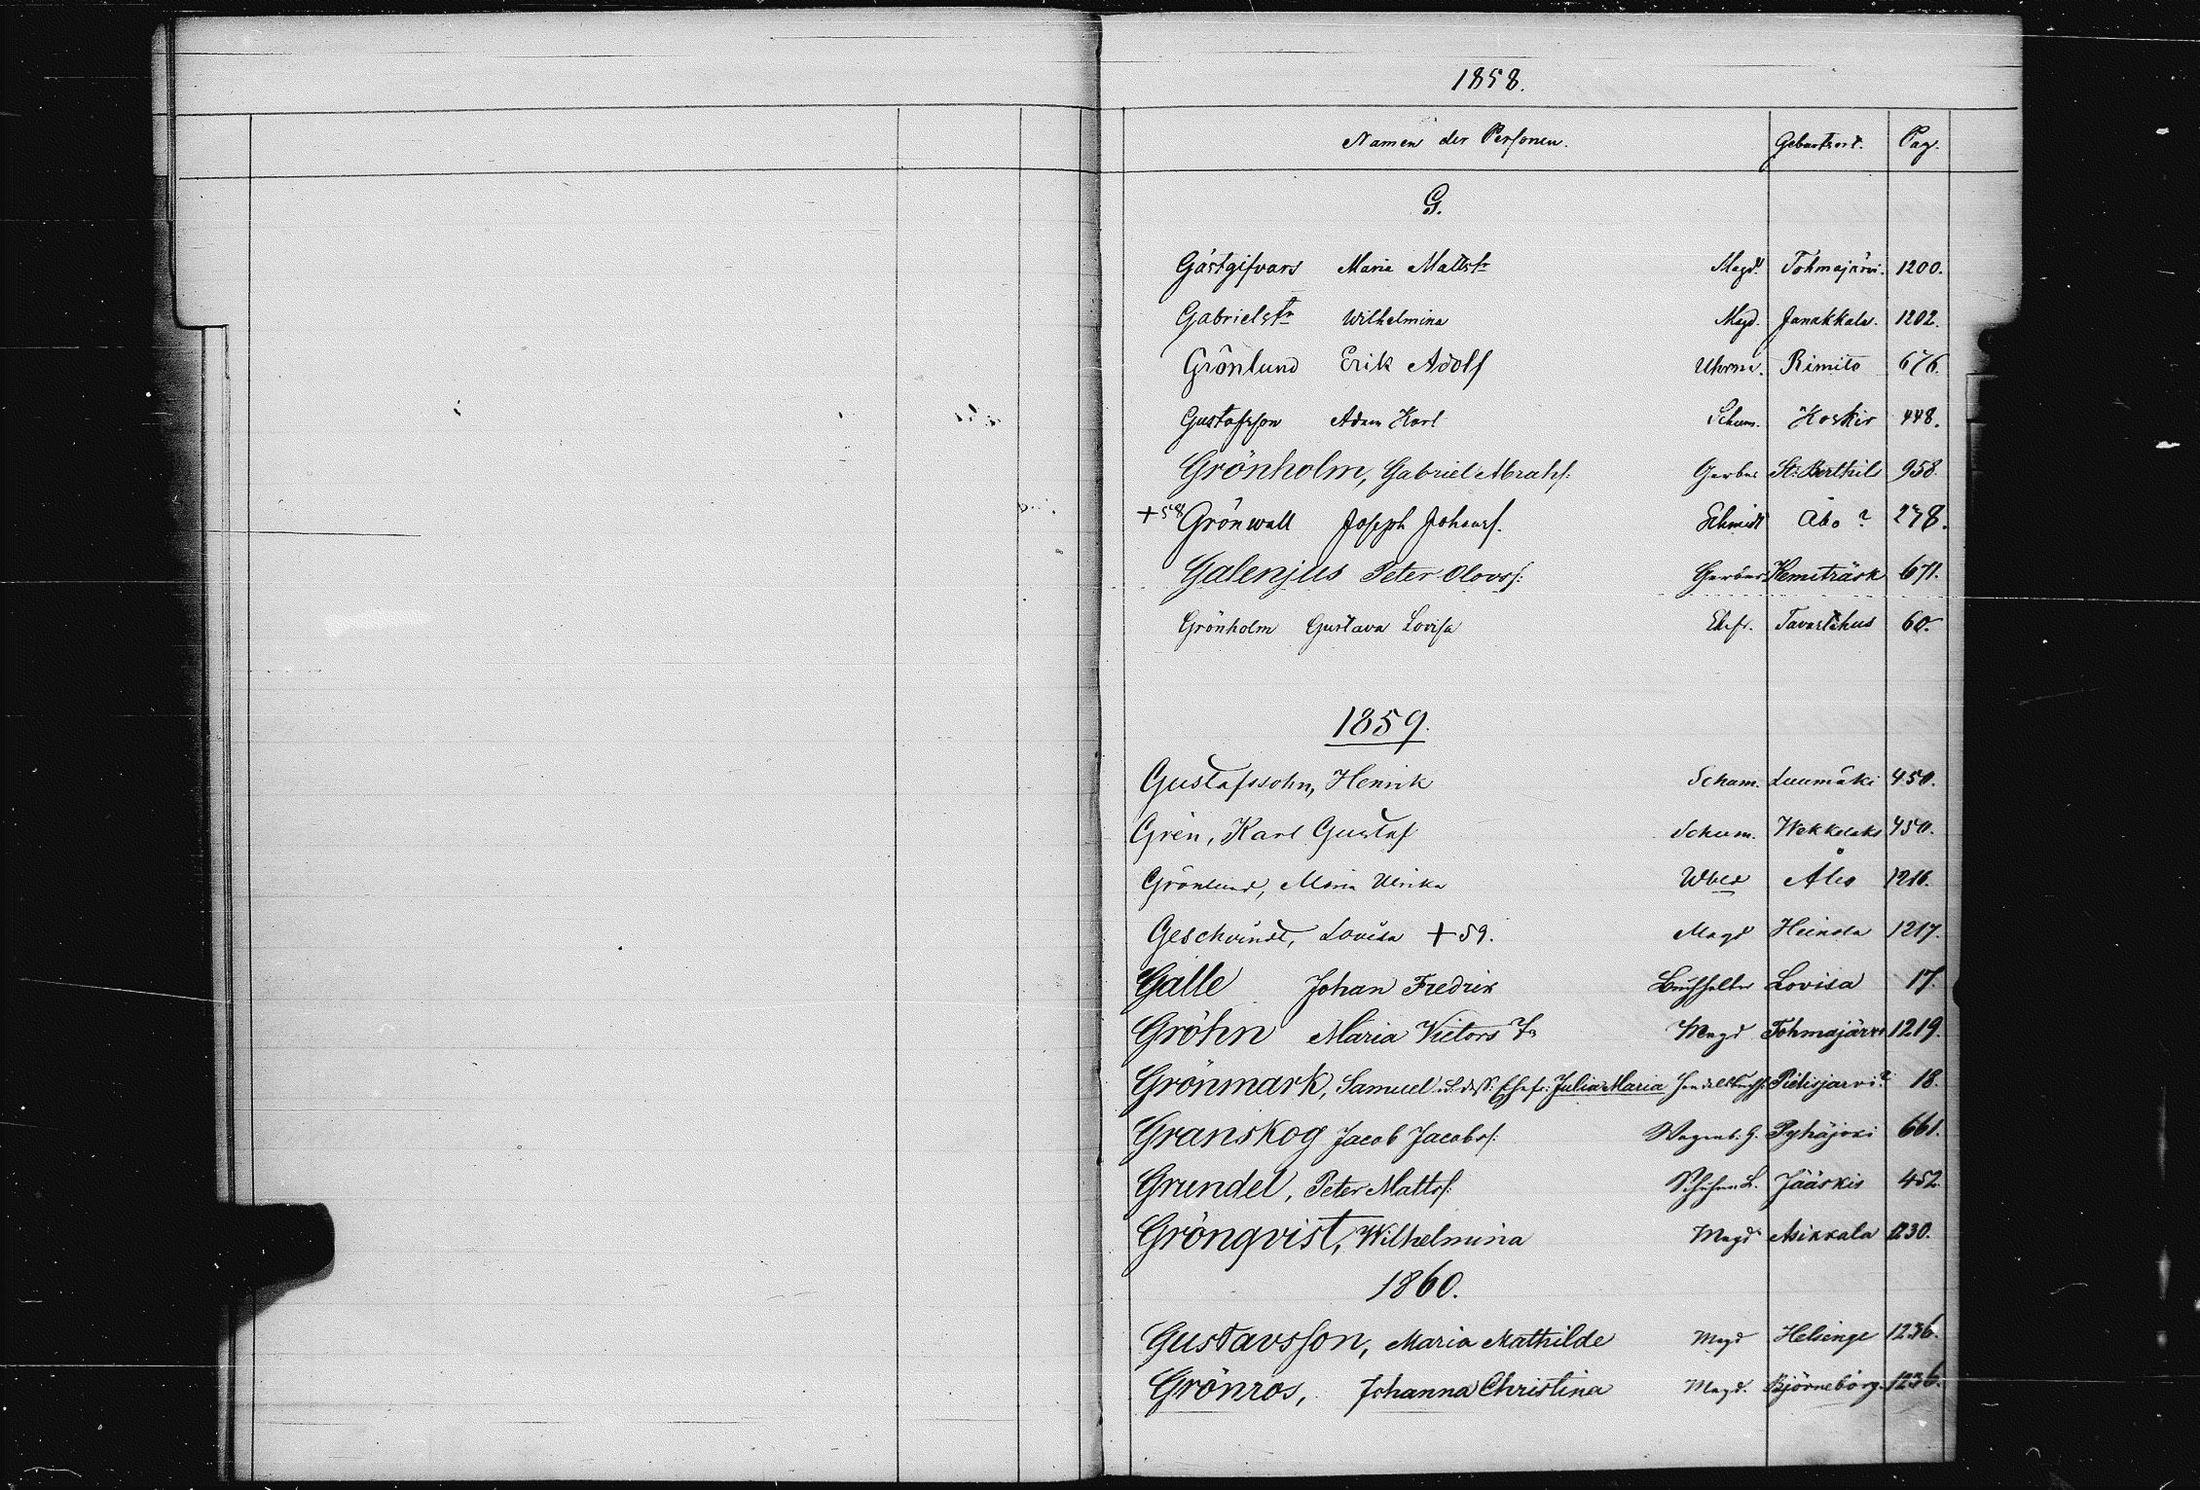 1858.
Namen der Personen. Geburtsort. Pag.
G.
Gästgifvars Maria Mattstr Magd. Tohmajärvi. 1200.
Gabrielstr Wilhelmina Magd. Janakkala. 1202.
Grönlund Erik Adolf Uhrm. Rimito 676.
Gustafsson Adam Karl Schum. Koskis 448.
Grönholm, Gabriel Abrahs: Gerber St. Berthils 958.
+58 Grönwall Joseph Johans. Schmidt Åbo? 278.
Galenjus Peter Olovs: Gerber Kemiträsk 671.
Grönholm Gustava Lovisa Ehefr. Tavastehus 60.
1859.
Gustafssohn, Henrik Schum. Luumäki 450.
Gren, Karl Gustaf Schum. Wekkelaks 450.
Grönlund, Maria Ulrika Åbo 1216.
Geschwindt, Lovisa +59. Magd Heinola 1217.
Galle Johan Fredrik Buchhalter Lovisa 17.
Gröhn Maria Victors Tr Magd Tohmajärvi 1219.
Grönmark, Samuel u. dess: Ehefr: Julia Maria Pielisjarvi? 18.
Granskog Jacob Jacobs: Wagenb. G. Pyhäjoki 661.
Grundel, Peter Matts: Jääskis 452.
Grönqvist, Wilhelmina Magd Asikkala 1230.
1860.
Gustavsson, Maria Mathilde Magd Helsinge 1236.
Grönros, Johanna Christina Magd. Björneborg. 1236.